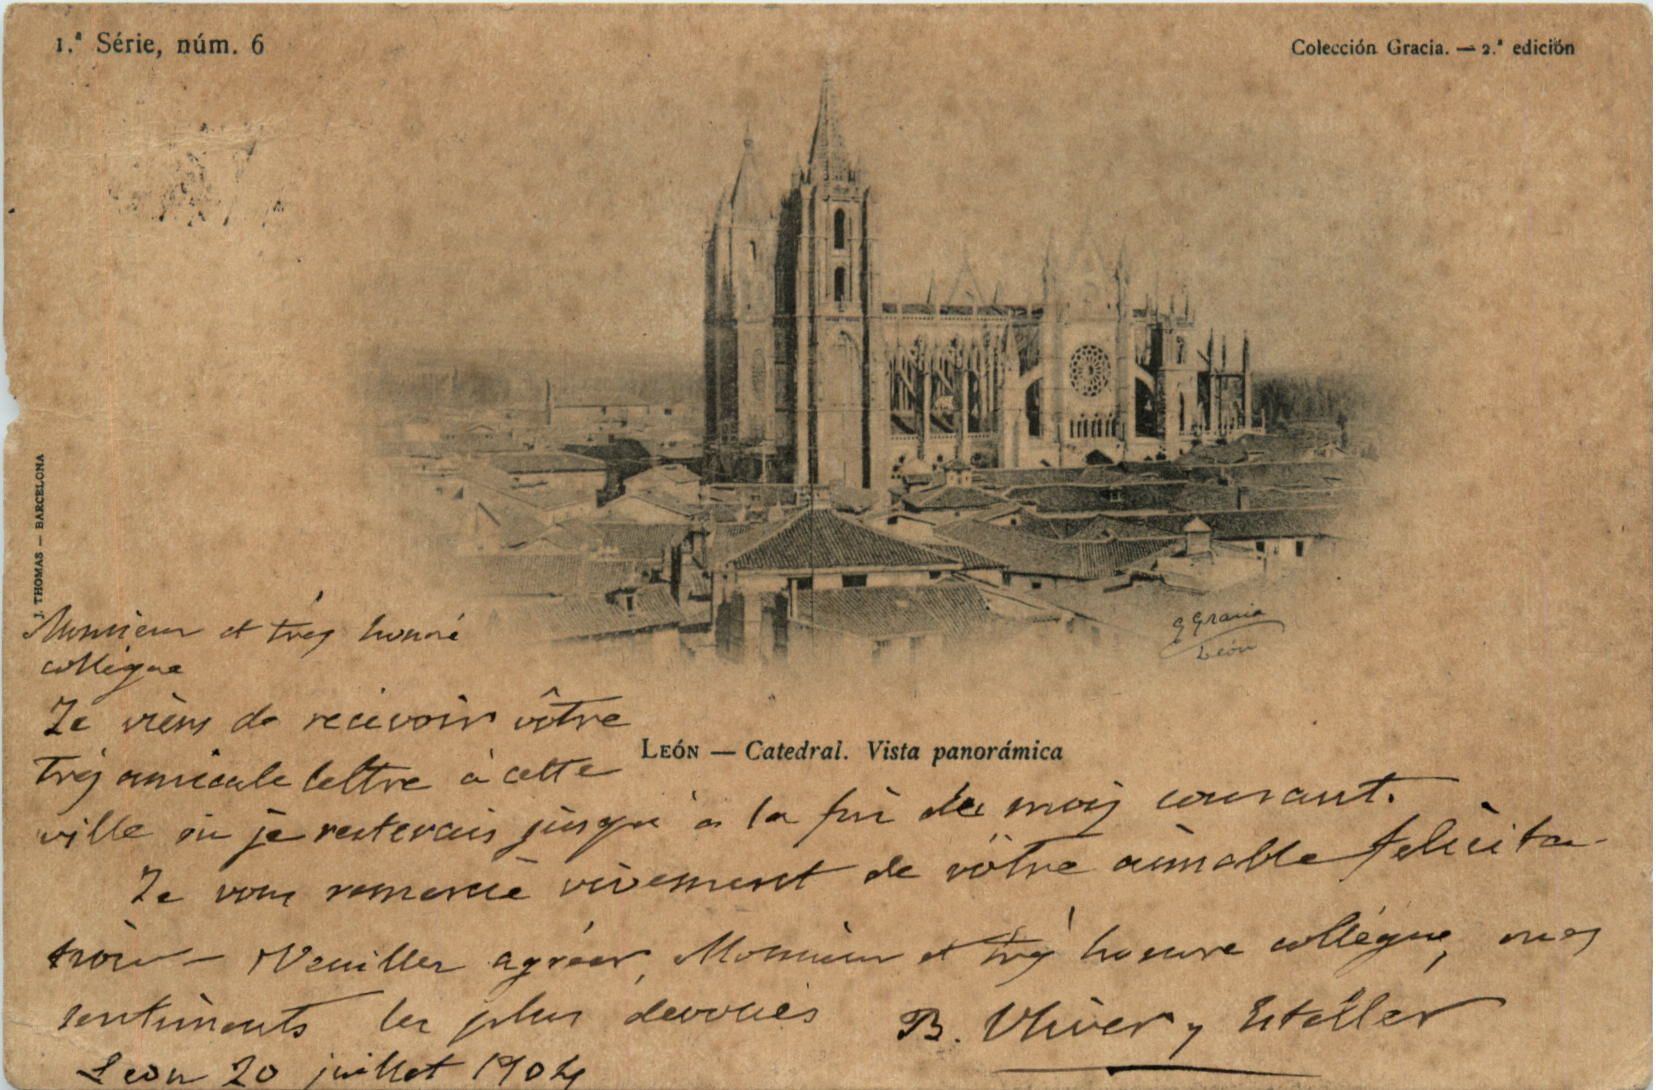 1.ª Série, núm. 6
Colección Gracia. — 2.ª edición
J. THOMAS — BARCELONA
G Gracia
León
LEÓN — Catedral. Vista panorámica
Monsieur et très honoré
collègue
Je viens de recevoir vôtre
très amicale lettre à cette
ville où je resterais jusqu'à la fin du mois courant.
Je vous remercie vivement de vôtre aimable felicita-
tion — Veuillez agréer, Monsieur et très honoré collègue, mes
sentiments les plus devoués
B. Oliver y Esteller
Leon 20 juillet 1904